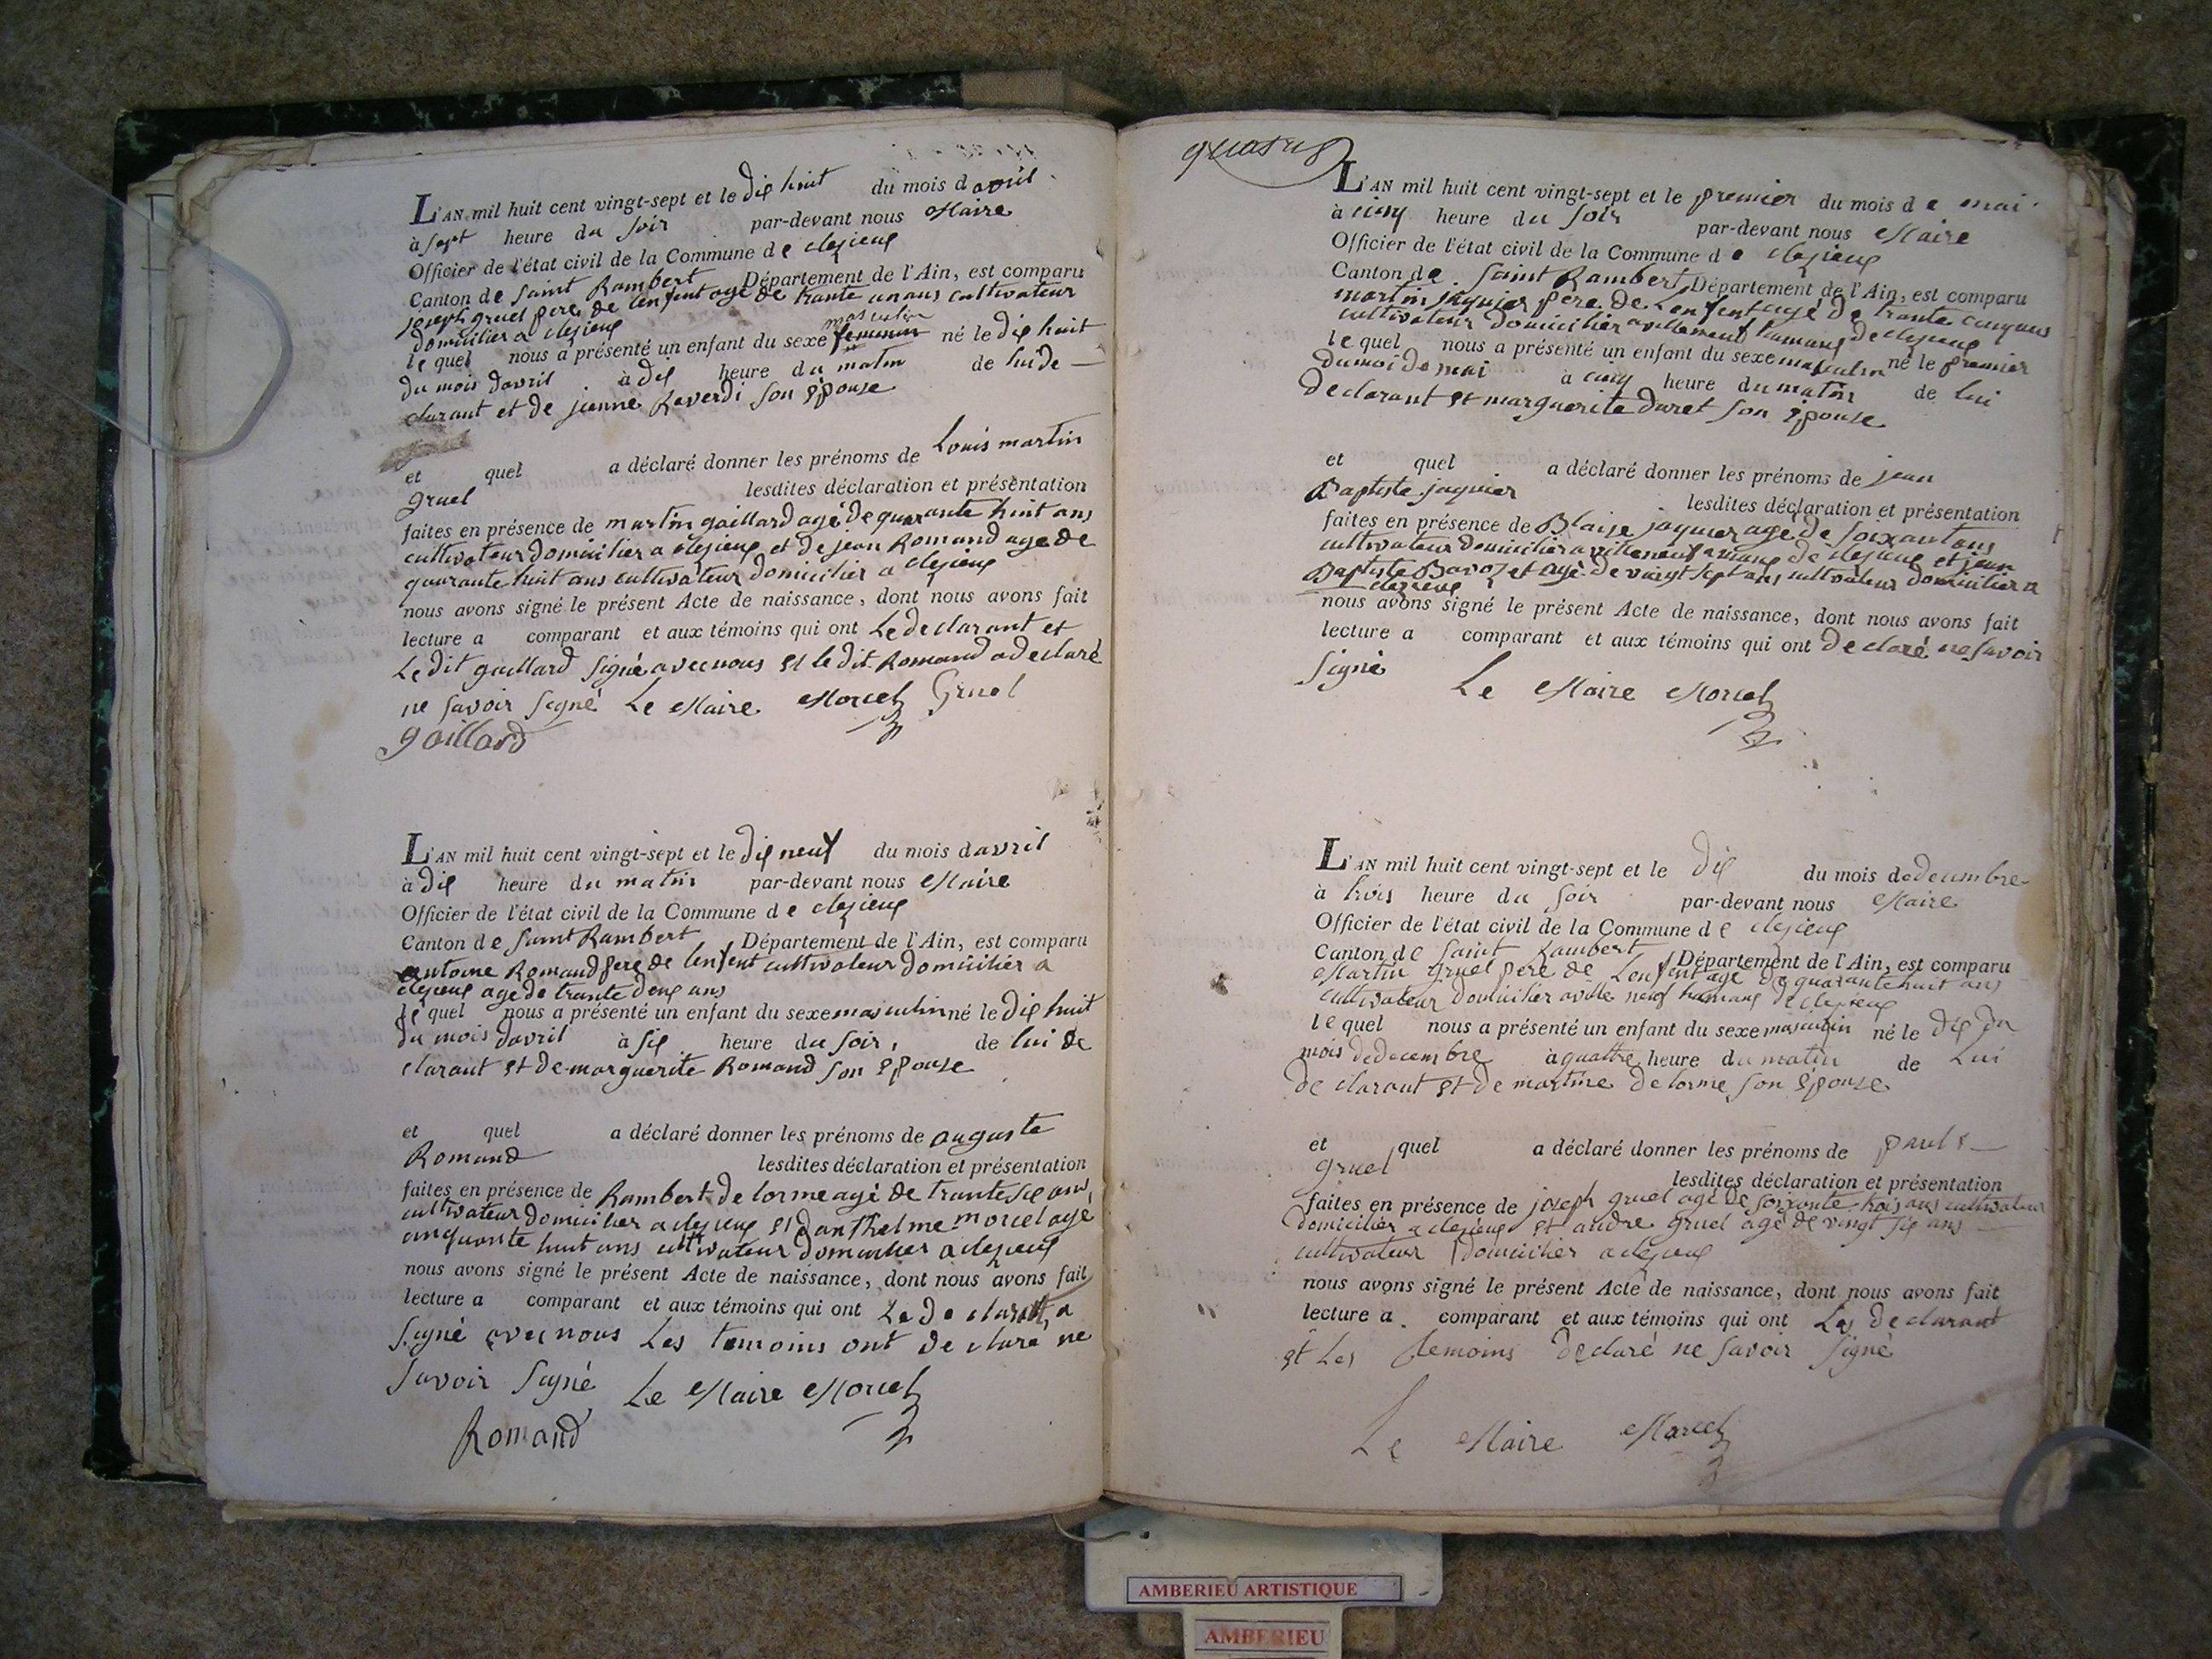 L'AN mil huit cent vingt-sept et le dix huit du mois d avril
à sept heure du soir par-devant nous Maire
Officier de l'état civil de la Commune de clezieux
Canton de Saint Rambert Département de l'Ain, est comparu
joseph gruel pere de lenfent agé de trante un ans cultivateur
domicilier a clezieux
masculin
le quel nous a présenté un enfant du sexe feminin né le dix huit
du mois davril à dix heure du matin de lui de
clarant et de jeanne Reverdi son épouse
et quel a déclaré donner les prénoms de Louis martin
gruel lesdites déclaration et présentation
faites en présence de martin gaillard agé de quarante huit ans
cultivateur domicilier a clezieux et de jean Romand age de
quarante huit ans cultivateur domicilier a clezieux
nous avons signé le présent Acte de naissance, dont nous avons fait
lecture a comparant et aux témoins qui ont Le declarant et
Le dit gaillard signé avec nous et le dit Romand a declaré
ne savoir signé Le Maire Morcel Gruel
gaillard
L'AN mil huit cent vingt-sept et le dix neuf du mois davril
à dix heure du matin par-devant nous Maire
Officier de l'état civil de la Commune de clezieux
Canton de Saint Rambert Département de l'Ain, est comparu
antoine Romand pere de lenfent cultivateur domicilier a
clezieux age de trante deux ans
le quel nous a présenté un enfant du sexe masculin né le dix huit
du mois davril à six heure du soir, de lui de
clarant et de marguerite Romand son épouse
et quel a déclaré donner les prénoms de auguste
Romand lesdites déclaration et présentation
faites en présence de Rambert de lorme agé de trante six ans,
cultivateur domicilier a clezieux et danthelme morcel age
cinquante huit ans cultivateur domicilier a clezieux
nous avons signé le présent Acte de naissance, dont nous avons fait
lecture a comparant et aux témoins qui ont Le de clarant, a
signé avec nous Les temoins ont de claré ne
savoir signé Le Maire Morcel
Romand
L'AN mil huit cent vingt-sept et le premier du mois de mai
à cinq heure du soir par-devant nous Maire
Officier de l'état civil de la Commune de clezieux
Canton de Saint Rambert Département de l'Ain, est comparu
martin jaquier pere de Lenfent agé de trante cinq ans
cultivateur domicilier a villeneuf hamaux de clezieux
le quel nous a présenté un enfant du sexe masculin né le premier
du moi de mai à cinq heure du matin de lui
declarant et marguerite duret son épouse
et quel a déclaré donner les prénoms de jean
Baptiste jaquier lesdites déclaration et présentation
faites en présence de Blaise jaquier agé de soixant ans
cultivateur domicilier a villeneuf hamaux de clezieux et jean
Baptiste Bavozet agé de vaingt sept ans cultivateur domicilier a
clezieux
nous avons signé le présent Acte de naissance, dont nous avons fait
lecture a comparant et aux témoins qui ont declaré ne savoir
signé Le Maire Morcel
L'AN mil huit cent vingt-sept et le dix du mois de decembre
à trois heure du soir par-devant nous Maire
Officier de l'état civil de la Commune de clezieux
Canton de Saint Rambert Département de l'Ain, est comparu
Martin gruel pere de Lenfent age de quarante huit ans
cultivateur domicilier a ville neuf hamaux de clezieux
le quel nous a présenté un enfant du sexe masculin né le dix du
mois de decembre à quattre heure du matin de Lui
de clarant et de martine de lorme son épouse
et quel a déclaré donner les prénoms de
gruel lesdites déclaration et présentation
faites en présence de joseph gruel agé de soixante trois ans cultivateur
domicilier a clezieux et andre gruel agé de vingt six ans
cultivateur domicilier a clezieux
nous avons signé le présent Acte de naissance, dont nous avons fait
lecture a comparant et aux témoins qui ont Les declarant
et Les temoins declaré ne savoir signé
Le Maire Morcel
AMBERIEU ARTISTIQUE
AMBERIEU